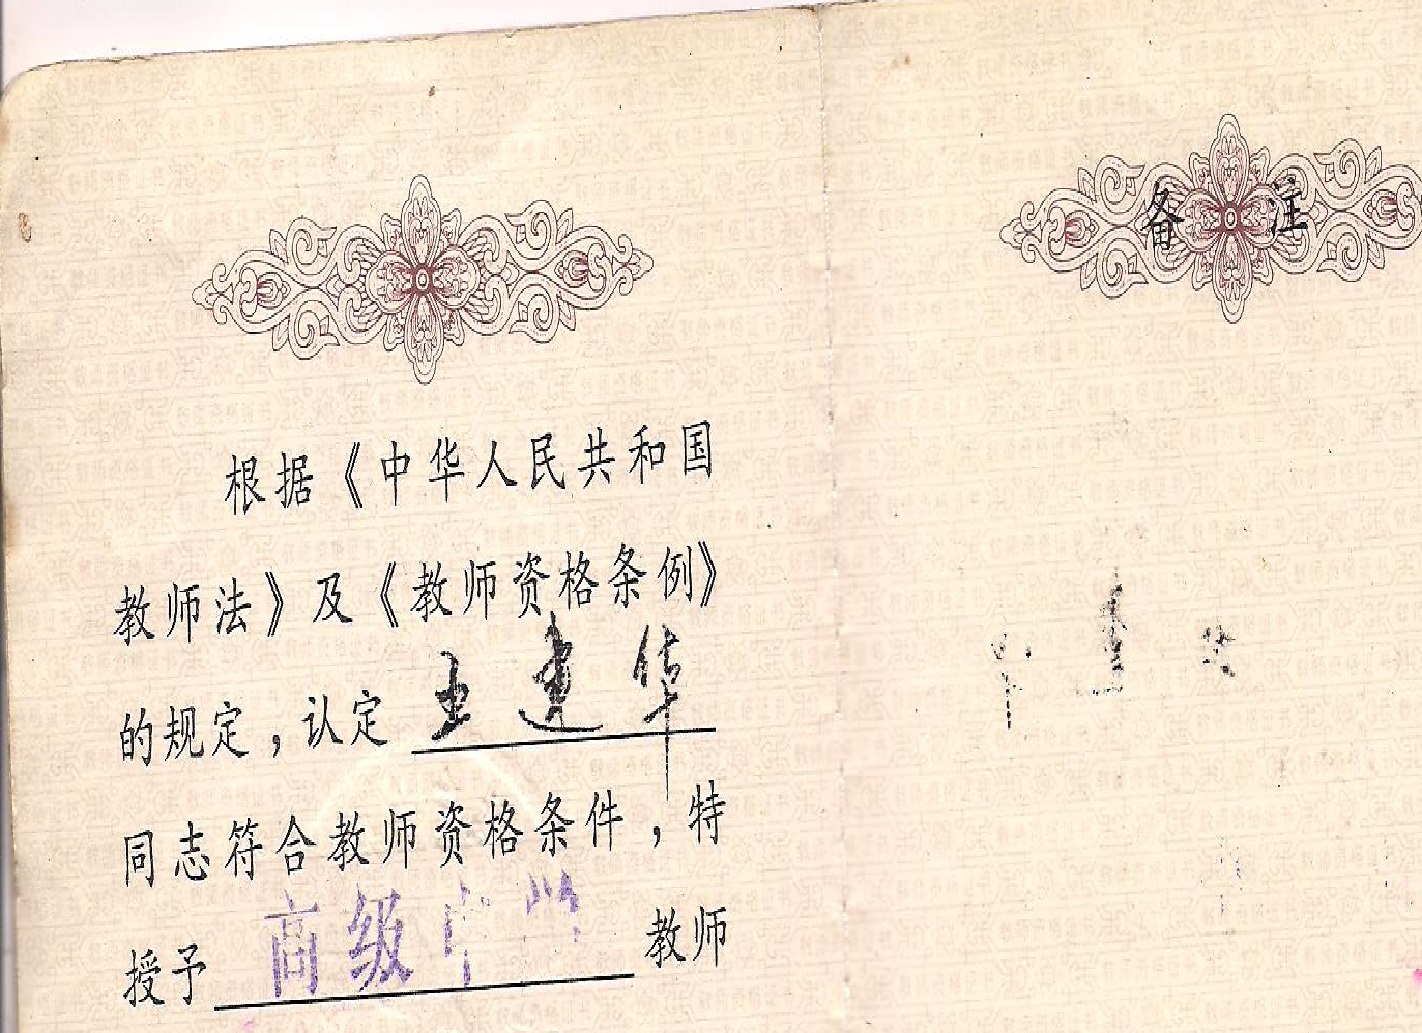 根据《中华人民共和国
教师法》及《教师资格条例》
的规定，认定 王建华
同志符合教师资格条件，特
授予 高级中学 教师
备 注